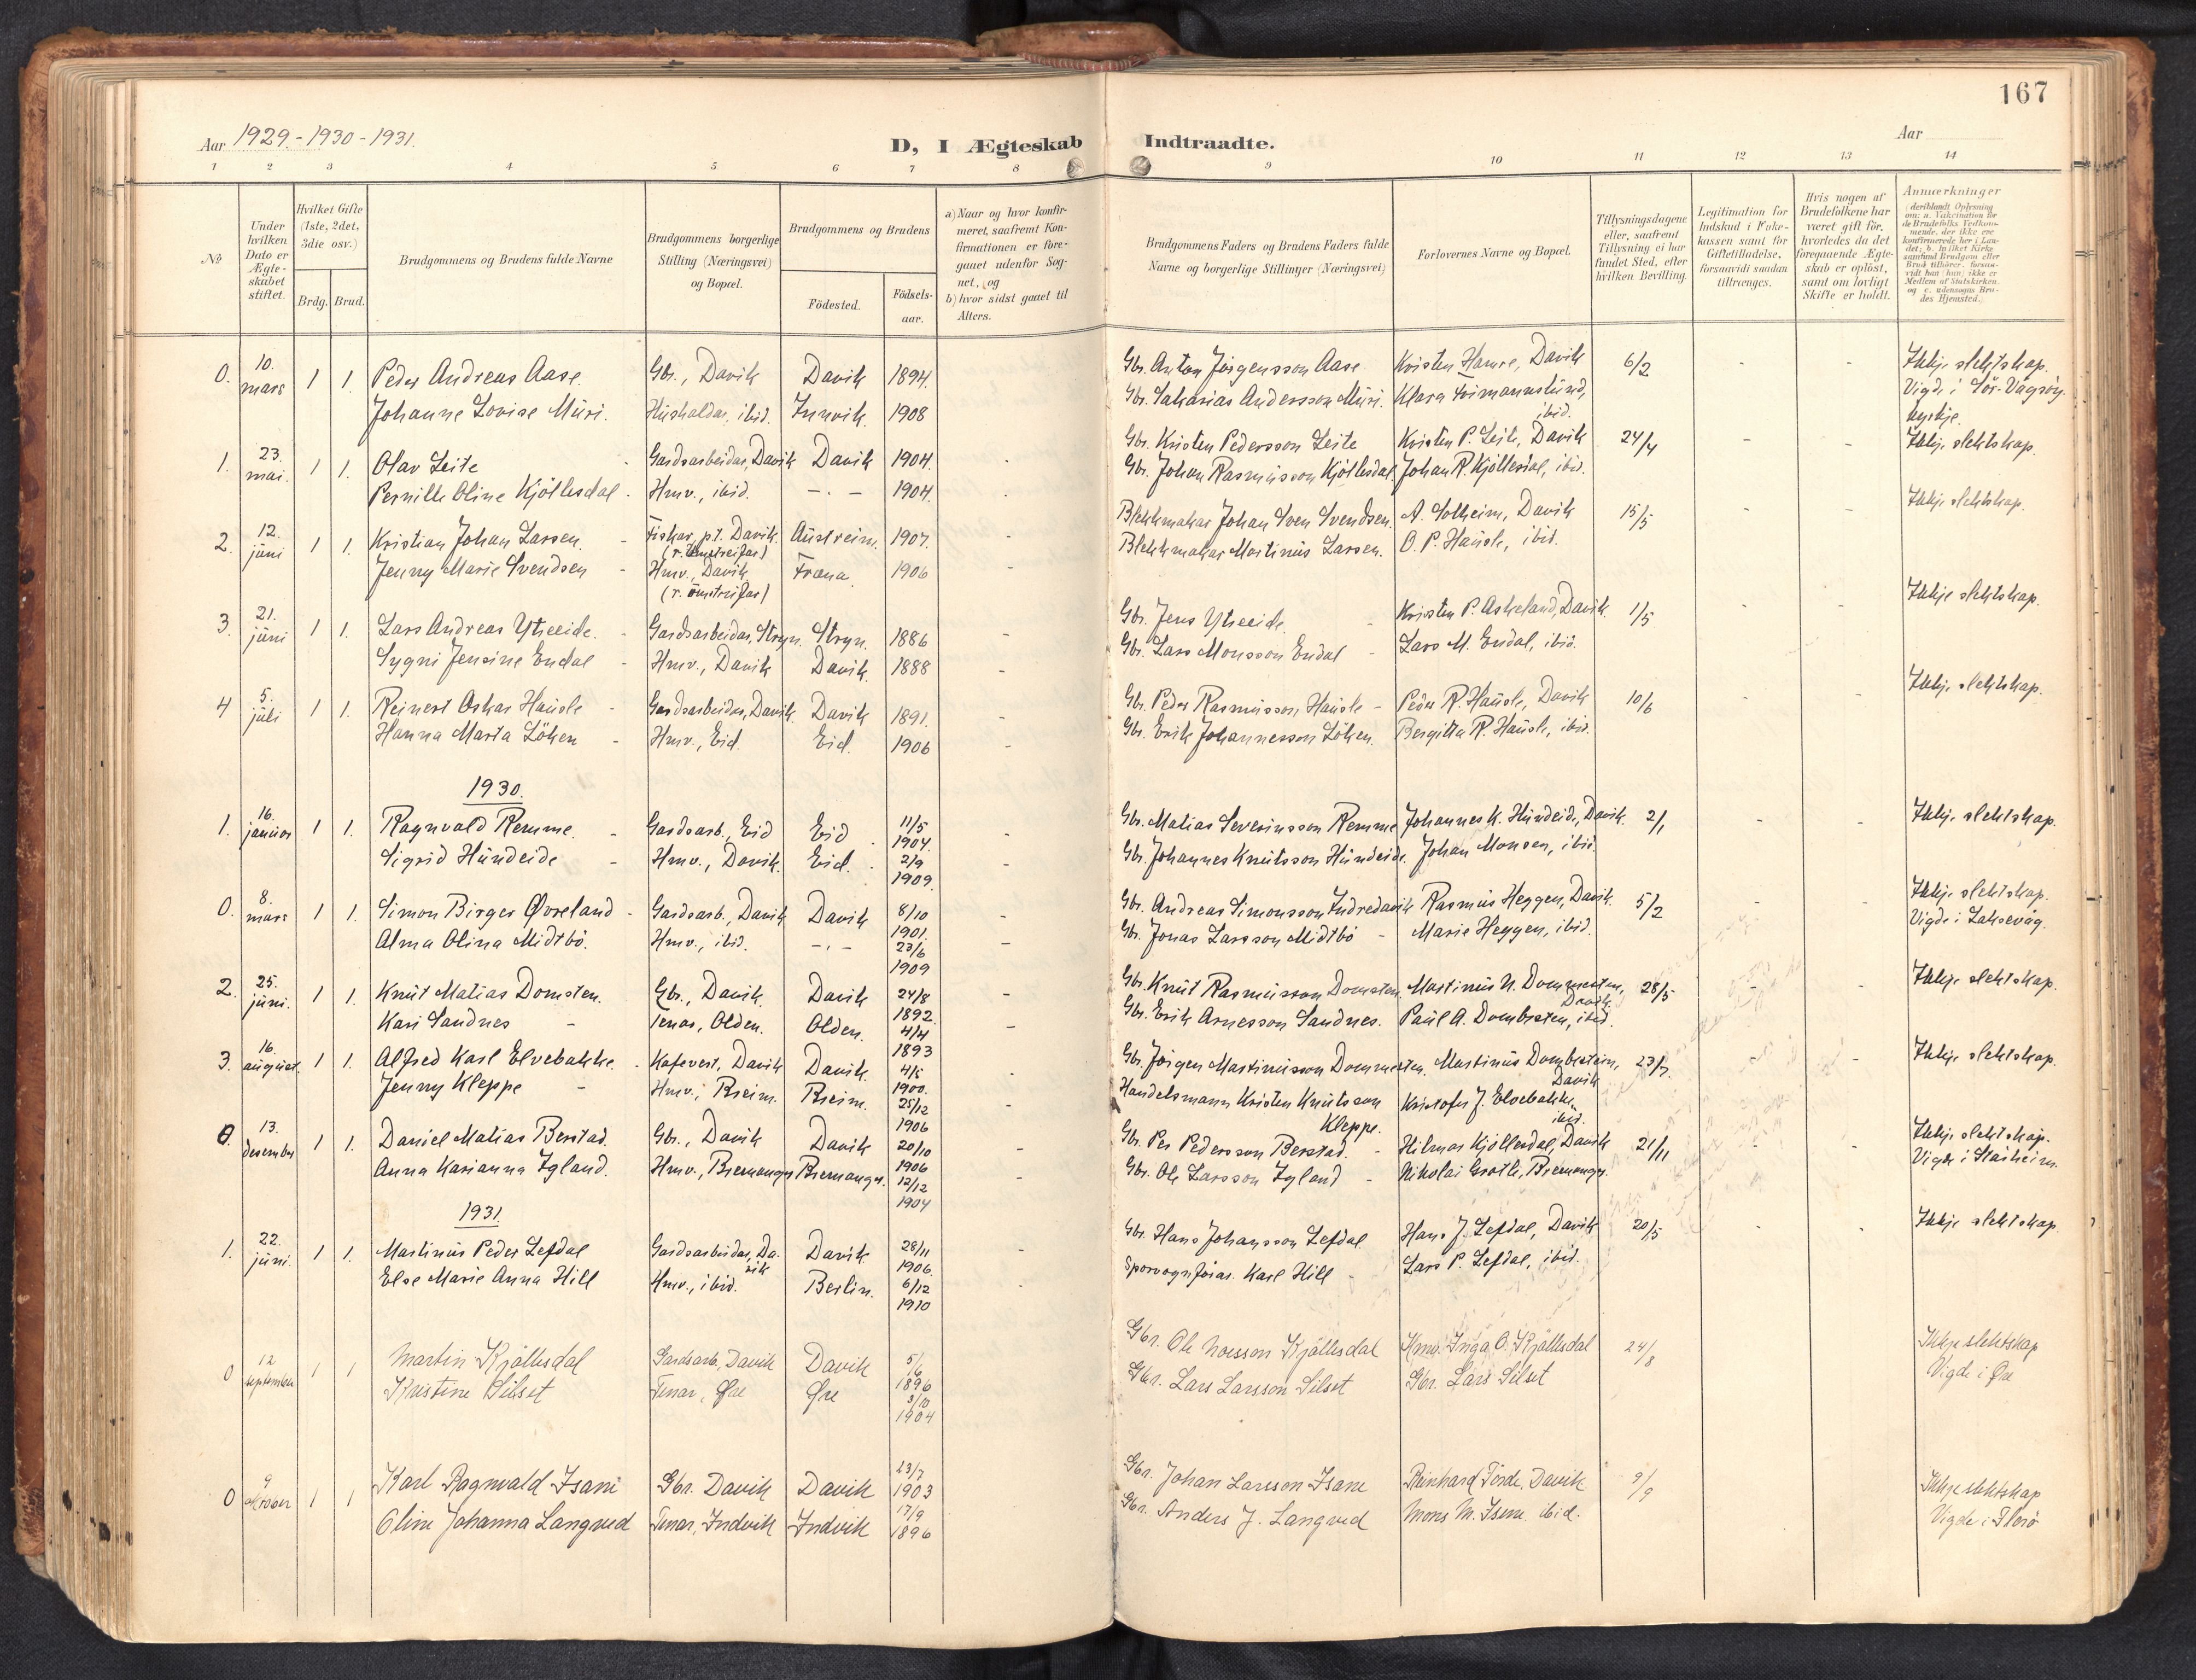 167
Aar 1929 - 1930 - 1931.
D, I Ægteskab Indtraadte.
Aar
1 2 3 4 5 6 7 8 9 10 11 12 13 14
№
Under hvilken Dato er Ægteskabet stiftet.
Hvilket Gifte (1ste, 2det, 3die osv.)
Brdg. Brud.
Brudgommens og Brudens fulde Navne
Brudgommens borgerlige Stilling (Næringsvei) og Bopæl.
Brudgommens og Brudens
Fødested.
Fødselsaar.
a) Naar og hvor konfirmeret, saafremt Konfirmationen er foregaaet udenfor Sognet, og
b) hvor sidst gaaet til Alters.
Brudgommens Faders og Brudens Faders fulde Navne og borgerlige Stillinger (Næringsvei)
Forlovernes Navne og Bopæl.
Tillysningsdagene eller, saafremt Tillysning ei har fundet Sted, efter hvilken Bevilling.
Legitimation for Indskud i Enkekassen samt for Giftetilladelse, forsaavidt saadan tiltrænges.
Hvis nogen af Brudefolkene har været gift før, hvorledes da det foregaaende Ægteskab er opløst, samt om lovligt Skifte er holdt.
Anmærkninger (deriblandt Oplysning om: a. Vakcination for de Brudefolks Vedkommende, der ikke ere konfirmerede her i Landet; b. hvilket Kirkesamfund Brudgom eller Brud tilhører, forsaavidt han (hun) ikke er Medlem af Statskirken, og c. udensogns Brudes Hjemsted.)
0. 10. mars 1 1. Peder Andreas Aase. Gbr., Davik Davik 1894. Gbr. Anton Jørgensson Aase Kristen Hamre, Davik 6/2 - - Ikkje slektskap.
Johanne Lovise Muri. Hushaldar, ibid. Innvik 1908 Gbr. Sakarias Andersson Muri. Klara ibid. Vigde i Sør-Vågsøy kyrkje.
1. 23. mai. 1 1. Olav Leite - Gardsarbeidar, Davik Davik 1904. - Gbr. Kristen Pedersson Leite Kristen P. Leite, Davik 24/4 - - Ikkje slektskap.
Pernille Oline Kjøllesdal - Hmv., ibid. - . - 1904. - Gbr. Johan Rasmusson Kjøllesdal Johan R. Kjøllesdal, ibid.
2. 12. juni 1 1. Kristian Johan Larsen. - Fiskar, pt. Davik (r. omstreifar) Austreim. 1907. - Blekkmakar Johan Sven Svendsen. A. Solheim, Davik 15/5 - - Ikkje slektskap.
Jenny Marie Svendsen - Hmv., Davik (r. omstreifar) Fræna. 1906 - Blekkmakar Martinus Larsen. O. P. Hausle, ibid.
3. 21. juni 1 1. Lars Andreas Ytreeide. - Gardsarbeidar, Stryn. Stryn. 1886 - Gbr. Jens Ytreeide - Kristen P. Askeland, Davik. 1/5 - - Ikkje slektskap.
Sygni Jensine Endal - Hmv., Davik Davik. 1888 - Gbr. Lars Monsson Endal - Lars M. Endal, ibid.
4 5. juli 1 1. Reinert Oskar Hausle - Gardsarbeidar, Davik. Davik 1891. - Gbr. Peder Rasmusson Hausle - Peder R. Hausle, Davik 10/6 - - Ikkje slektskap.
Hanna Marta Løken - Hmv., Eid. Eid. 1906 - Gbr. Erik Johannesson Løken. Bergitta R. Hausle, ibid.
1930.
1. 16. januar 1 1. Ragnvald Remme. - Gardsarb., Eid Eid 11/5 1904. - Gbr. Matias Severinsson Remme Johannes K. Hundeid, Davik. 2/1 - - Ikkje slektskap.
Sigrid Hundeide - Hmv., Davik. Eid. 2/9 1909. - Gbr. Johannes Knutsson Hundeide. Johan Monsen, ibid.
0. 8. mars 1 1. Simon Birger Øvreland - Gardsarb., Davik Davik 8/10 1901. - Gbr. Andreas Simonsson Indredavik Rasmus Heggen, Davik. 5/2 - - Ikkje slektskap.
Alma Olina Midtbø. Hmv., ibid. - . - 23/6 1909 - Gbr. Jonas Larsson Midtbø - Marie Heggen, ibid. Vigde i Laksevåg.
2. 25. juni. 1 1. Knut Matias Domsten. Gbr., Davik. Davik 24/8 1892. - Gbr. Knut Rasmusson Domsten. Martinus N. Dommersten, Davik 28/5 - - Ikkje slektskap.
Kari Sandnes - Tenar, Olden. Olden. 4/4 1893 - Gbr. Erik Arnesson Sandnes. Paul A. Dombesten, ibid.
3. 16. august. 1 1. Alfred Karl Elvebakke. - Kafevert, Davik Davik. 4/5 1900. - Gbr. Jørgen Martinusson Dommersten. Martinus Dombestein, Davik 23/7. - - Ikkje slektskap.
Jenny Kleppe - Hmv., Breim. Breim. 25/12 1906 - Handelsmann Kristen Knutsson Kleppe. Kristofer J. Elvebakke, ibid.
0. 13. desember 1 1. Daniel Matias Berstad. Gbr., Davik Davik 20/10 1906 - Gbr. Per Pedersson Berstad. - Hilmar Kjøllesdal, Davik 21/11 - - Ikkje slektskap.
Anna Karianna Igland. Hmv., Bremanger Bremanger. 12/12 1904 - Gbr. Ole Larsson Igland - Nikolai Grotle, Bremanger. Vigde i Stårheim.
1931.
1. 22. juni. 1 1. Martinus Peder Lefdal Gardsarbeidar, Davik Davik 28/11 1906. - Gbr. Hans Johansson Lefdal Hans J. Lefdal, Davik 20/5 - - Ikkje slektskap.
Else Marie Anna Hill Hmv., ibid. Berlin. 6/12 1910 - Sporvognførar. Karl Hill - Lars P. Lefdal, ibid.
0 12 september 1 1 Martin Kjøllesdal Gardsarb., Davik Davik 5/6 1896 Gbr. Ole Kjøllesdal Hmv. Inga O. Kjøllesdal 24/8 Ikkje slektskap
Kristine Silset Tenar, Øre Øre 3/10 1904 Gbr. Lars Larsson Silset Gbr. Lars Silset Vigde i Øre
0 9 oktober 1 1 Karl Ragnvald Isane Gbr. Davik Davik 23/7 1903 Gbr. Johan Larsson Isane Reinhard Førde, Davik 9/9 Ikkje slektskap
Oline Johanna Langved Tenar, Indvik Indvik 17/9 1896 Gbr. Anders J. Langved Mons M. Isene ibid. Vigde i Florø